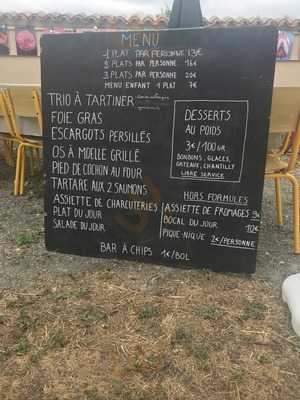 MENU
1 PLAT PAR PERSONNE 13€
2 PLATS PAR PERSONNE 16€
3 PLATS PAR PERSONNE 20€
MENU ENFANT 1 PLAT 7€
TRIO À TARTINER
FOIE GRAS
ESCARGOTS PERSILLÉS
OS À MOELLE GRILLÉ
PIED DE COCHON AU FOUR
TARTARE AUX 2 SAUMONS
ASSIETTE DE CHARCUTERIES
PLAT DU JOUR
SALADE DU JOUR
DESSERTS
AU POIDS
3€/100GR
BONBONS, GLACES,
GATEAUX, CHANTILLY
LIBRE SERVICE
HORS FORMULES
ASSIETTE DE FROMAGES 9€
BOCAL DU JOUR 10€
PIQUE-NIQUE 2€/PERSONNE
BAR À CHIPS 1€/BOL